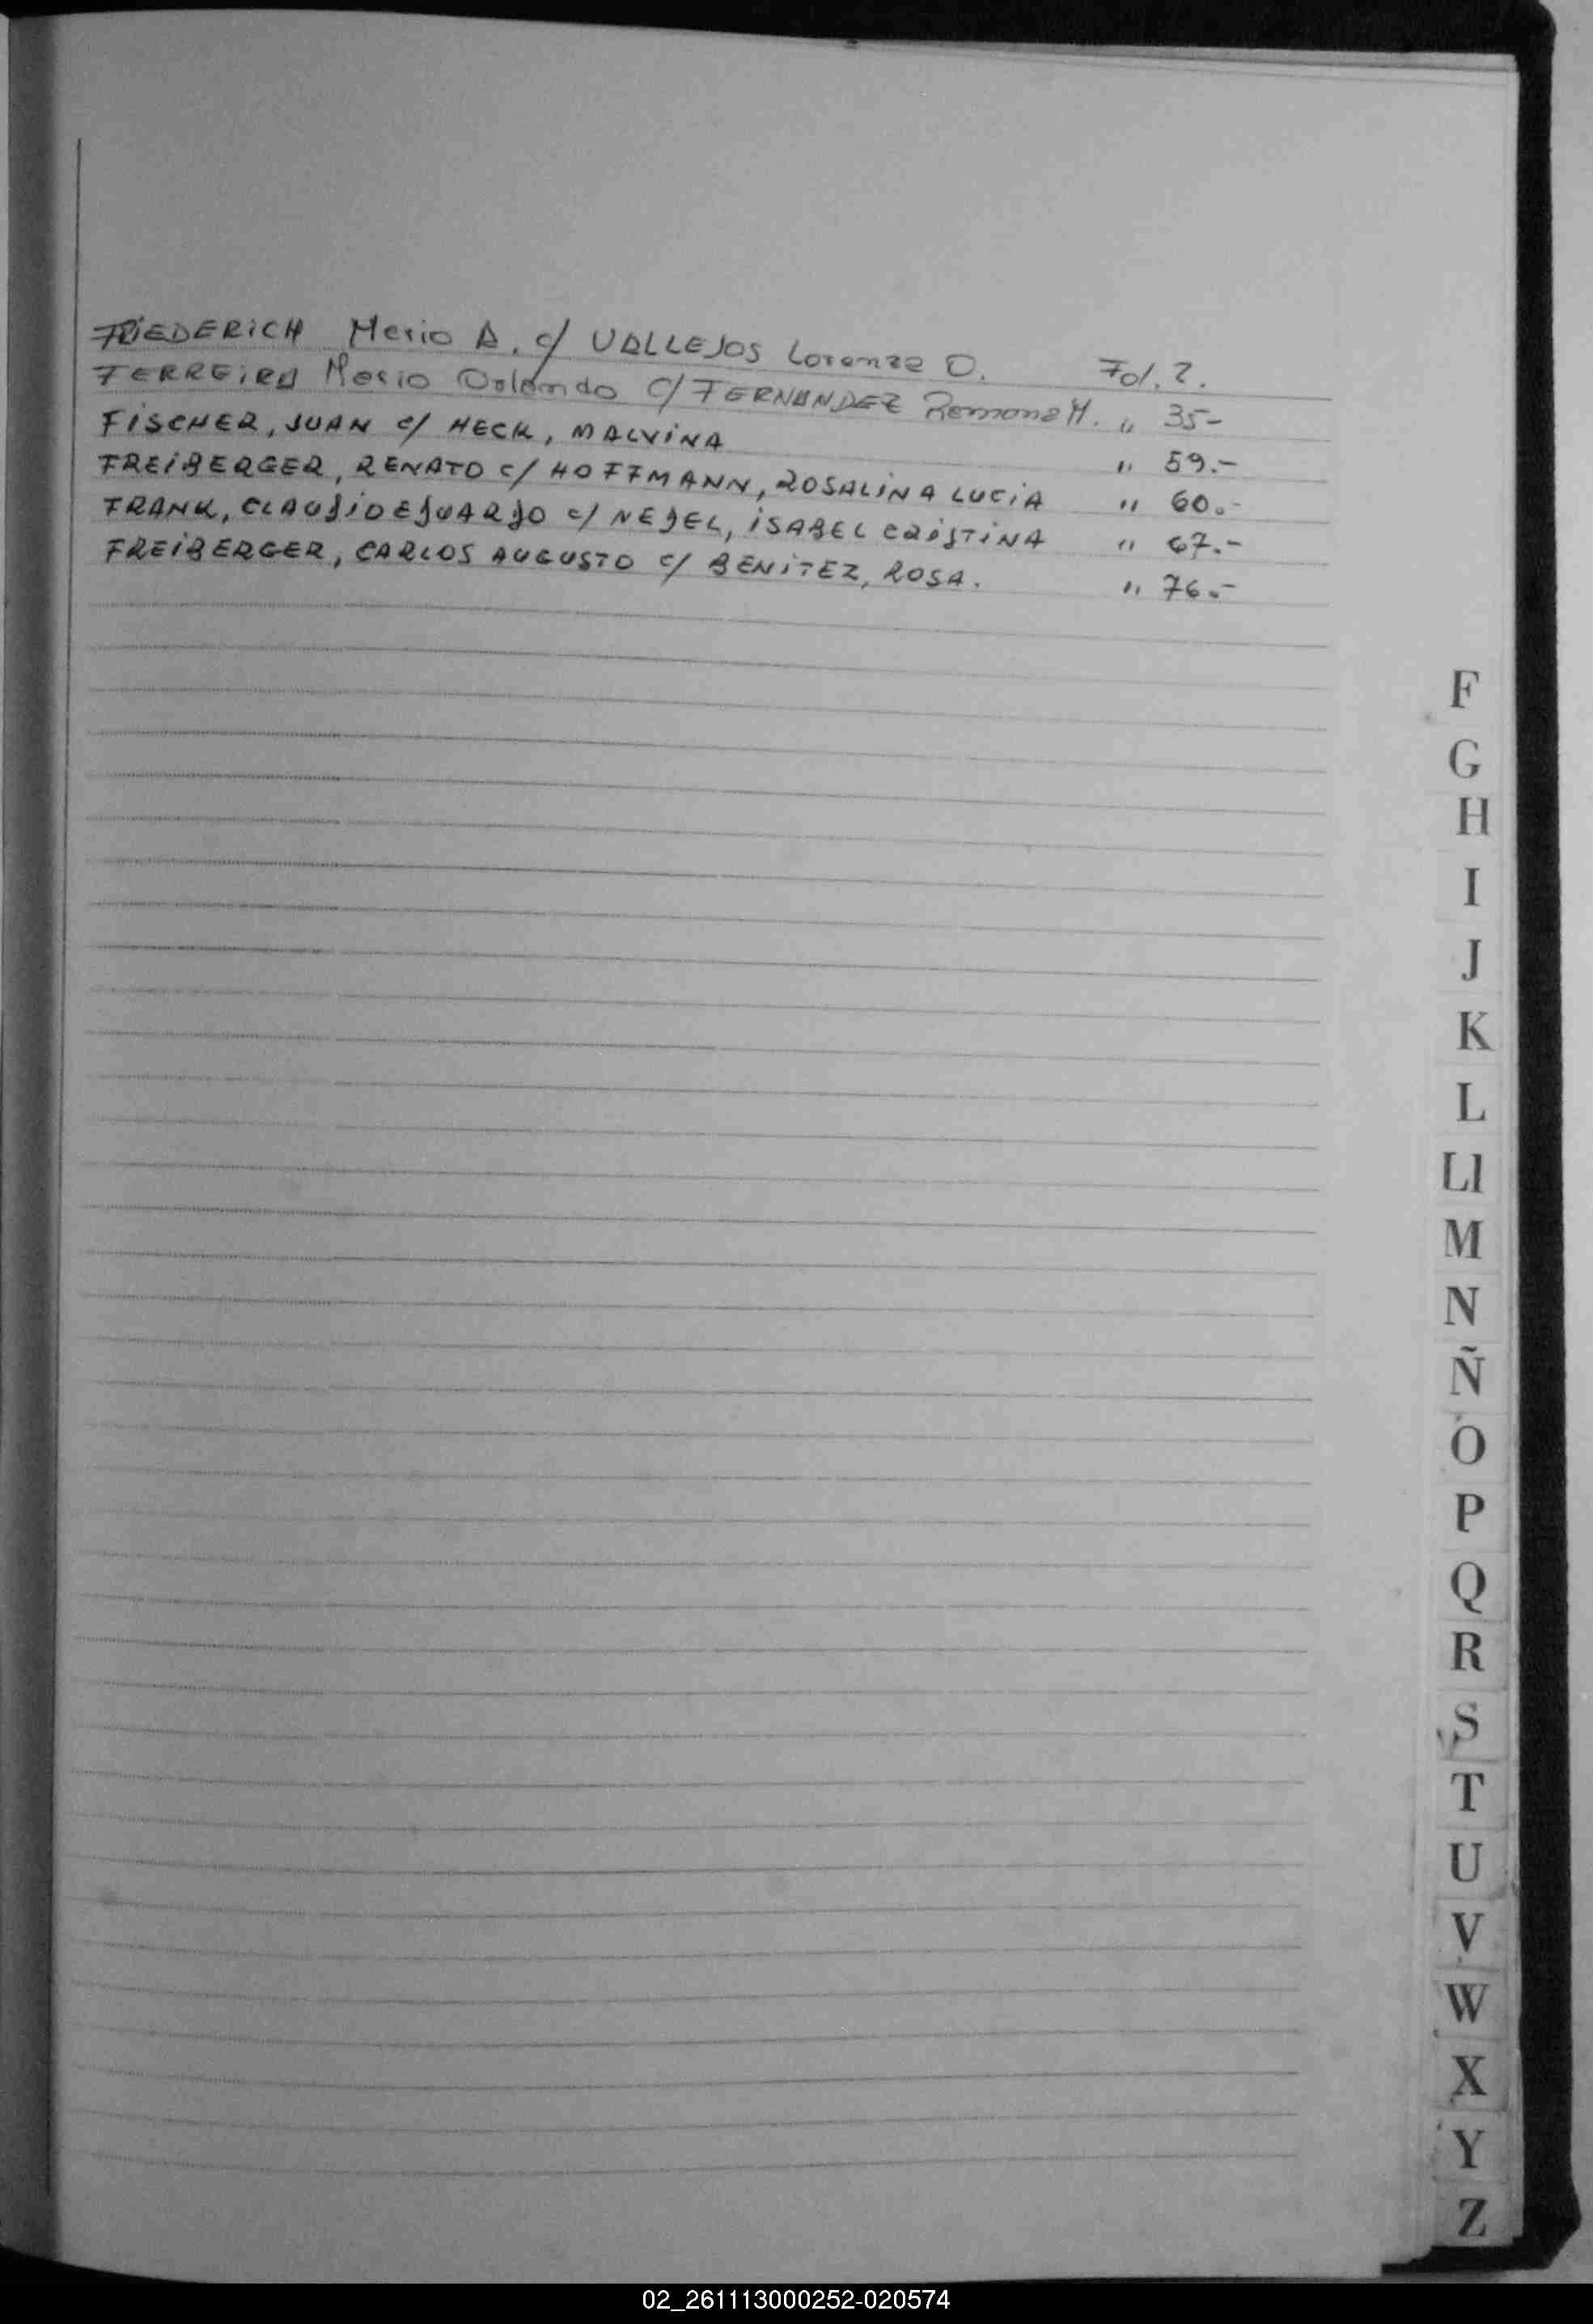 FRIEDERICH Mario A. c/ VALLEJOS Lorenza O. Fol. 2.
FERREIRA Mario Orlando C/ FERNANDEZ Ramona M. " 35-
FISCHER, JUAN c/ HECK, MALVINA " 59.-
FREIBERGER, RENATO c/ HOFFMANN, ROSALINA LUCIA " 60.-
FRANK, CLAUDIO EDUARDO c/ NEDEL, ISABEL CRISTINA " 67.-
FREIBERGER, CARLOS AUGUSTO c/ BENITEZ, ROSA. " 76.-
F
G
H
I
J
K
L
Ll
M
N
Ñ
O
P
Q
R
S
T
U
V
W
X
Y
Z
02_261113000252-020574